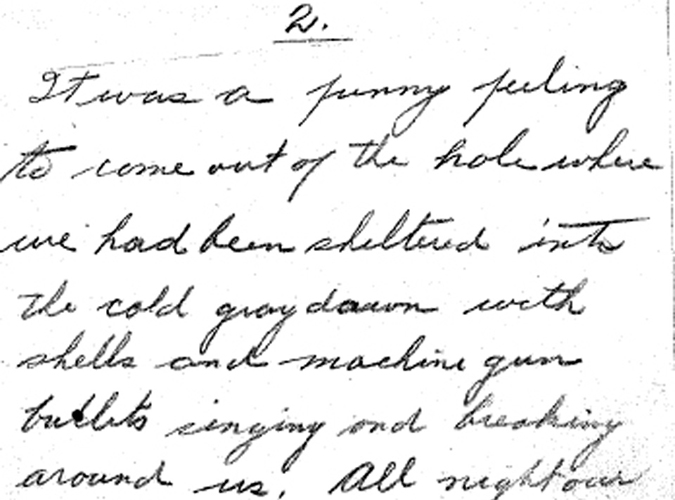 2.
It was a funny feeling
to come out of the hole where
we had been sheltered into
the cold gray dawn with
shells and machine gun
bullets singing and breaking
around us. All night our